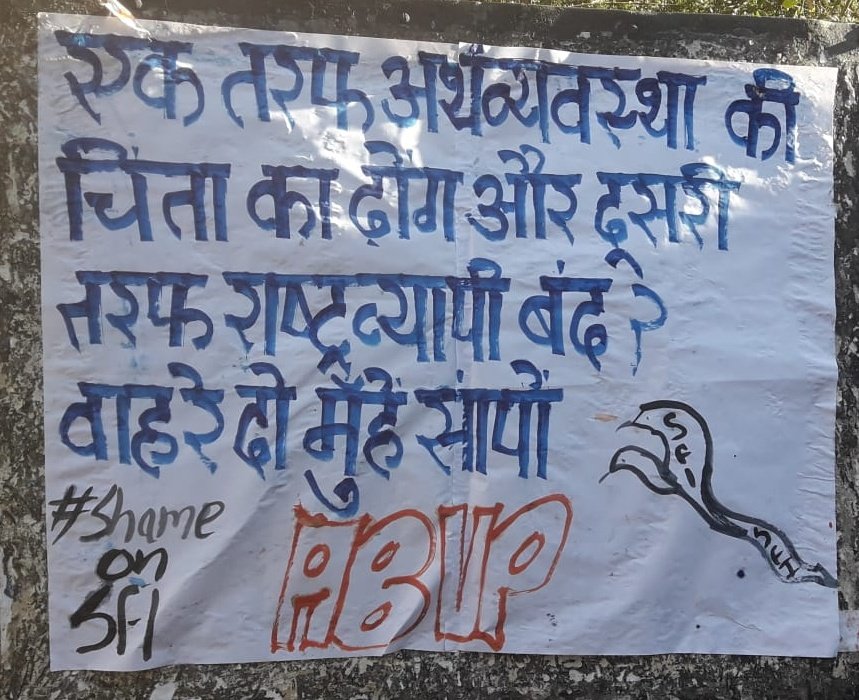 एक तरफ अर्थव्यवस्था की
चिंता का ढ़ोंग और दूसरी
तरफ राष्ट्रव्यापी बंद ?
वाहरे दो मुँहें सांपों
#Shame
on
SFI
ABVP
SFI